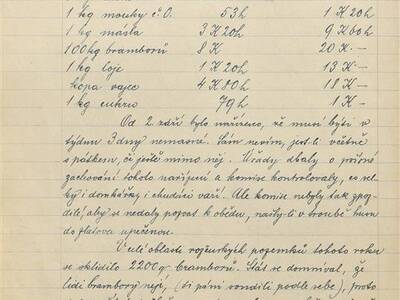 1 kg mouky č. 0. 53 h 1 K 20 h
1 kg másla 3 K 20 h 9 K 60 h
100 kg bramborů 8 K 20 K.—
1 kg loje 1 K 20 h 13 K.—
kopa vajec 4 K 80 h 18 K —
1 kg cukru 79 h 1 K —
Od 2. září bylo nařízeno, že musí býti v
týdnu 3 dny nemasné. Sám nevím, jest-li včetně
s pátkem, či ještě mimo něj. Úřady dbaly o přísné
zachování tohoto nařízení a komise kontrolovaly, co vel-
ký i domkářský i chudáci vaří. Ale komise nebyly tak
aby se nedaly pozvat k obědu, našly-li v troubě husu
do zlatova upečenou.
V celé oblasti pozemků tohoto roku
se sklidilo 2200 q bramborů. Stát se domníval, že
lidi brambory nejí, (ti páni soudili podle sebe), proto